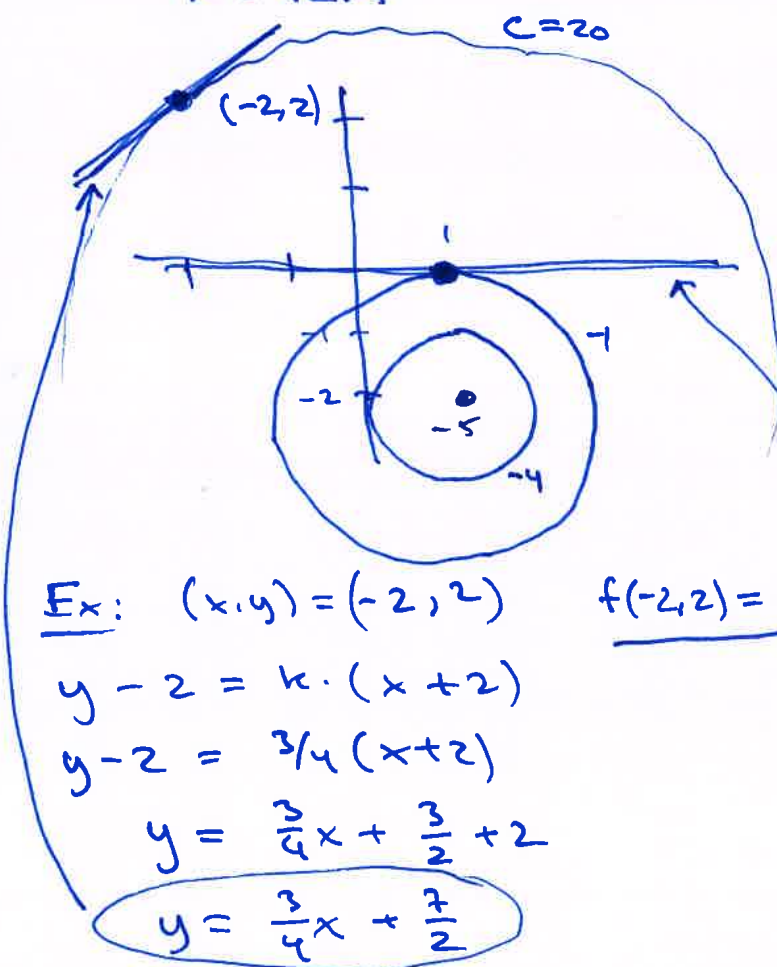 c=20
(-2,2)
1
-1
-1
-2
-5
-4
Ex: (x,y) = (-2,2) f(-2,2) =
y - 2 = k · (x + 2)
y - 2 = 3/4 (x+2)
y = 3/4 x + 3/2 + 2
y = 3/4 x + 7/2